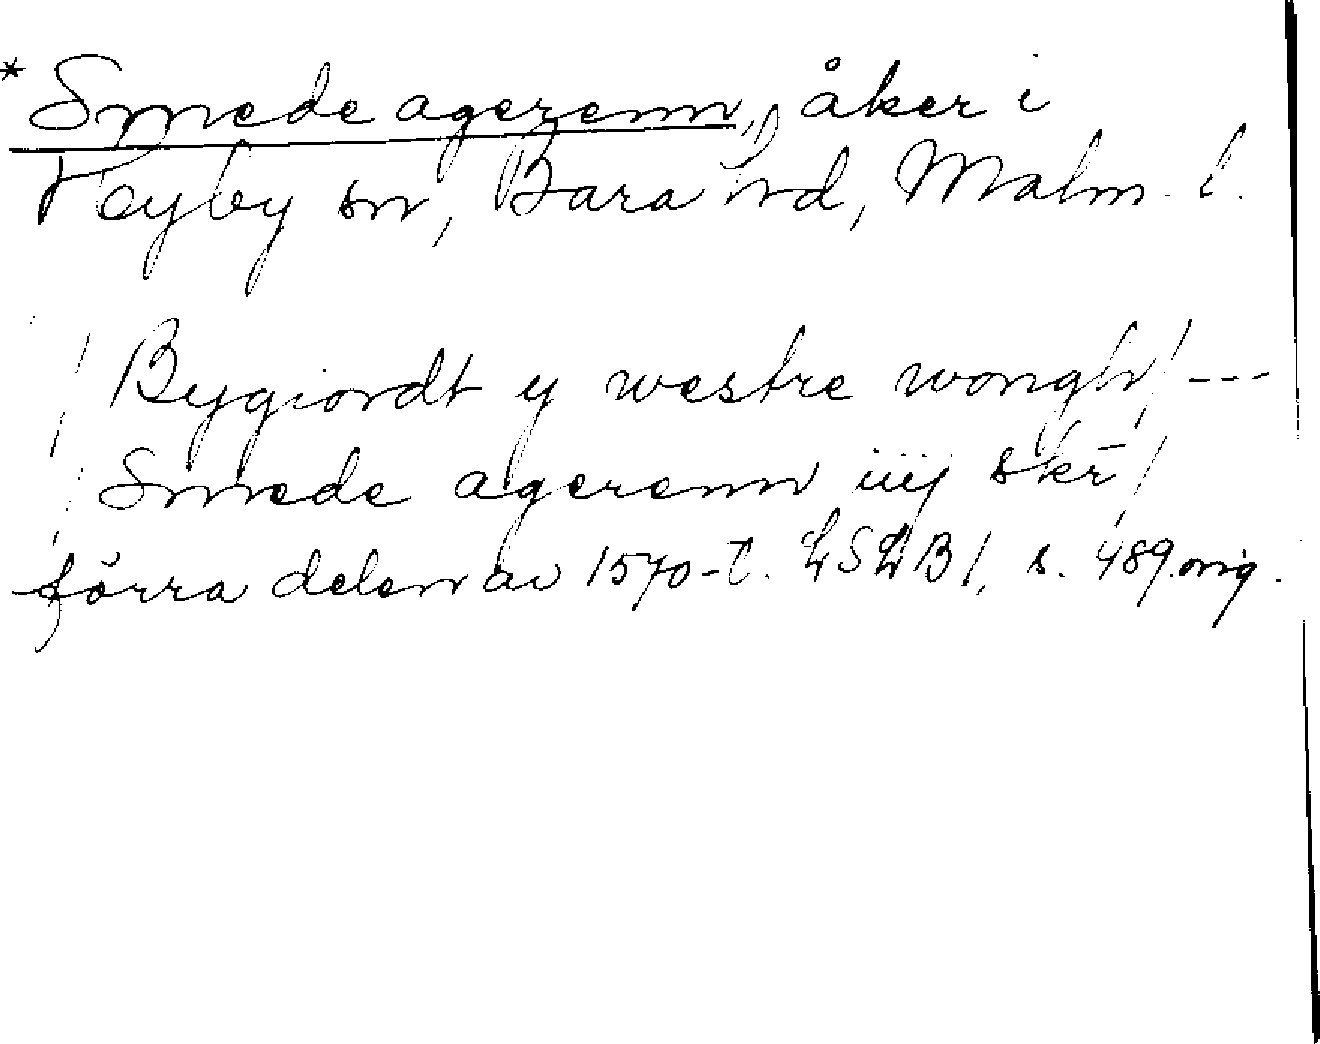 * Smede agerenn, åker i
Hyby sn, Bara hd, Malm. l.
/ Bygiordt y westre wongh / ---
/ Smede agerenn iiij skr̄ /
förra delen av 1570-t. LSLB 1, s. 489 orig.